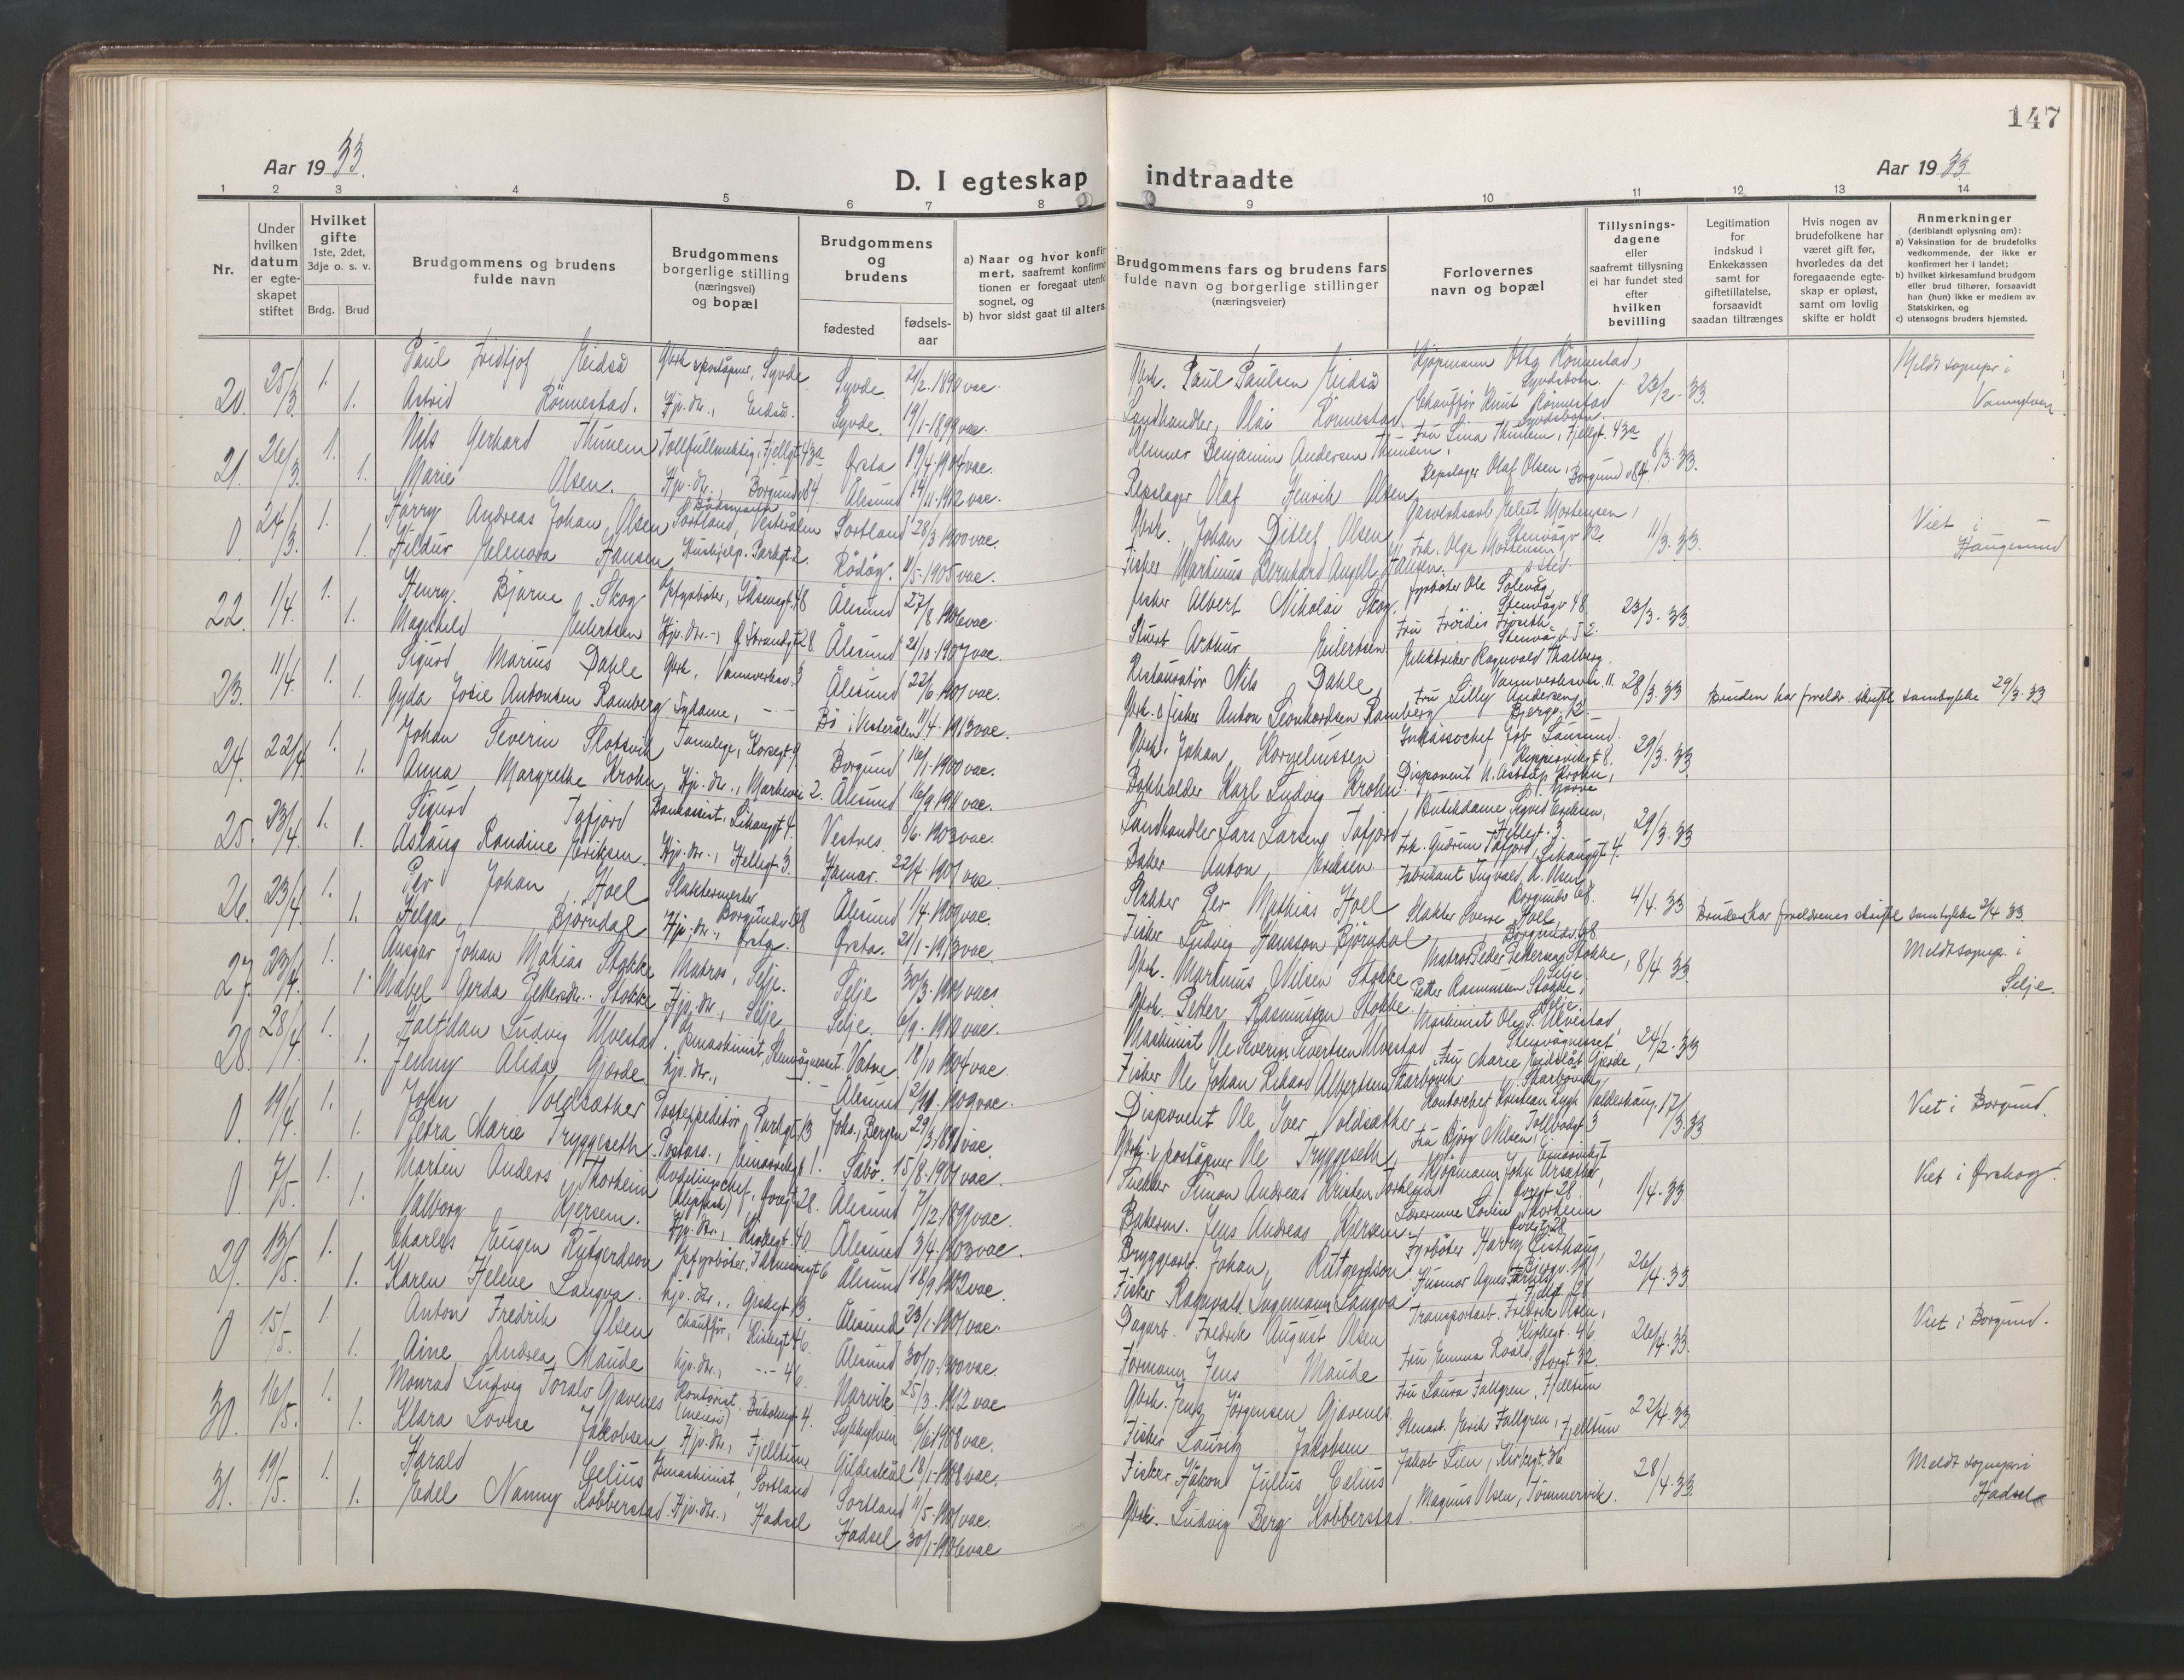 147
Aar 19 33.
Aar 19 33
D. I egteskap indtraadte
1 2 3 4 5 6 7 8 9 10 11 12 13 14
Nr.
Under hvilken datum er egteskapet stiftet
Hvilket gifte 1ste, 2det, 3dje o. s. v.
Brdg. Brud
Brudgommens og brudens fulde navn
Brudgommens borgerlige stilling (næringsvei) og bopæl
Brudgommens og brudens
fødested
fødsels-aar
a) Naar og hvor konfir
mert, saafremt konfirma
tionen er foregaat utenfo
sognet, og
b) hvor sidst gaat til alters.
Brudgommens fars og brudens fars
fulde navn og borgerlige stillinger
(næringsveier)
Forlovernes navn og bopæl
Tillysnings-dagene eller saafremt tillysning ei har fundet sted efter hvilken bevilling
Legitimation for indskud i Enkekassen samt for giftetillatelse, forsaavidt saadan tiltrænges
Hvis nogen av brudefolkene har været gift før, hvorledes da det foregaaende egteskap er opløst, samt om lovlig skifte er holdt
Anmerkninger
(deriblandt oplysning om):
a) Vaksination for de brudefolks vedkommende, der ikke er konfirmert her i landet;
b) hvilket kirkesamfund brudgom eller brud tilhører, forsaavidt han (hun) ikke er medlem av Statskirken, og
c) utensogns bruders hjemsted.
20. 25/3. 1. Paul Fridtjof Eidså Gbrk. & poståpner, Syvde. Syvde. 21/2-1890 vac. Gbrk. Paul Paulsen Eidså Kjøpmann Olav Rönnestad, Syvdsbotn. 23/2-33. Meldt sognepr. i
1. Astrid Rönnestad. Hj.v. dtr., Eidså. Syvde. 19/1-1899 vac. Landhandler, Olai Rönnestad. Chauffør Knut Rönnestad Syvdsbotn. Vannylven.
21. 26/3. 1. Nils Gerhard Thunem Tollfullmektig, Fjellgt. 43a Ørsta 19/4-1904 vac. Benjamin Andersen Thunem, Fru Lina Thunem, Fjellgt. 43a 8/3-33.
1. Marie Olsen. Hj.v. dtr., Borgundv. 84. Ålesund 14/11-1912 vac. Repslager Olaf Henrik Olsen Repslager Olaf Olsen, Borgundv. 84.
0. 24/3. 1. Harry Andreas Johan Olsen Sortland, Vesterålen Sortland 28/3-1900 vac. Gbrk. Johan Ditlef Olsen Mortensen, Stenvågv. 32. 11/3-33. Viet i
1. Hildur Elenora Hansen Hushjelp. Parkgt. 2. Rödöy. 11/5-1905 vac. Fisker Martinus Bernhard Angell Hansen. Frk. Olga Mortensen, s. sted. Haugesund
22. 1/4. 1. Henry Bjarne Skog Ålesund 27/8-1906 vac. Fisker Albert Nikolai Skog. Fyrböter Ole Solevåg, Stenvågv. 48 23/3-33.
1. Magnhild Eilertsen Hj.v. dtr., Ö. Strandgt. 28 Ålesund 21/10-1907 vac. Stuert Arthur Eilertsen. Fru Fröidis Fröseth, Stenvågv. 52.
23. 11/4. 1. Sigurd Marius Dahle Ålesund 22/6-1901 vac. Restauratør Nils Dahle, Elektriker Ragnvald Thalberg, Vannverksvei 11. 28/3-33 Bruden har foreldr. skriftl. samtykke 29/3-33
1. Gyda Josie Antonsen Ramberg Sydame, - - Bö i Vesterålen 11/4-1913 vac. Gbrk. & fisker Anton Leonhardsen Ramberg Fru Lilly Andersen, Bjergv. 12.
24. 22/4. 1. Johan Severin Slotsvik Tannlege, Korsegt. 9 Borgund 16/1-1900 vac. Gbrk. Johan Korneliussen Inkassochef Job Sausund. 29/3-33
1. Anna Margrethe Krohn, Hj.v. dtr., Markevei 2. Ålesund 16/9-1911 vac. Bokholder Karl Ludvig Krohn. Disponent N. Astrup Krohn,
25. 23/4. 1. Sigurd Tafjord Bankassist. Lihauggt. 4. Vestnes. 1903 vac. Landhandler Lars Larsen Tafjord Butikdame Eriksen, Hellegt. 3 29/3-33
1. Aslaug Randine Eriksen. Hj.v. dtr., Hellegt. 3. Hamar. 22/7-1901 vac. Baker Anton Eriksen Frk. Gudrun Tafjord, Lihauggt. 4.
26. 23/4. 1. Per Johan Hoel Slaktermester Borgundv. 68 Ålesund 1/4-1909 vac. Slakter Per Mathias Hoel Fabrikant Ingvald K. Olsen Borgundv. 68. 4/4-33 Bruden har foreldrenes skriftl. samtykke 3/4 33.
1. Helga Björndal Hj.v. dtr., Ørsta. Ørsta. 21/1-1913 vac. Fisker Ludvig Hansson Björndal Slakter Sverre Hoel, Borgundv. 68
27. 23/4. 1. Ansgar Johan Matias Stokke Matros, Selje. Selje 30/3-1906 vac. Gbrk. Martinus Nilsen Stokke Matros Peder Pettersen Stokke, Selje. 8/4-33. Meldt sognepr. i
1. Mabel Gerda Pettersdtr. Stokke Hj.v. dtr., Selje Selje. 6/9-1910 vac. Gbrk. Petter Rasmussen Stokke Petter Rasmussen Stokke, Selje. Selje.
28. 28/4. 1. Halfdan Ludvig Ulvestad. Maskinist, Stenvågneset. Vatne. 18/10-1904 vac. Maskinist Ole Severin Sivertsen Ulvestad Maskinist Ole S. Ulvestad, Stenvågneset 24/2-33
1. Jenny Alida Gjærde. hj.v. dtr., Ålesund 1909 vac. Fisker Ole Johan Rikard Albertsen Skarbövik Fru Marie Gjærde, Skarbövik,
0. 19/4. 1. John Voldsæther Postexpeditør, Parkgt. 13 Joh.s, Bergen 29/3-1891 vac. Disponent Ole Iver Voldsæther Kontorchef Kristian Valderhaug, Tollbodgt. 3 17/3-33 Viet i Borgund.
1. Petra Marie Tryggeseth. Postass., Einarvikgt. 1. Sæbö. 15/8-1901 vac. Gbrk. & poståpner Ole Tryggeseth Fru Björg Nilsen, Einarvikgt
0. 7/5. 1. Martin Anders Thorheim Avdelingschef, Grensegt. 28. Ålesund 7/12-1899 vac. Snekker Simon Andreas Kristen Torheim Kjöpmann John Årsæther, 1/4-33 Viet i Ørskog.
1. Valborg Hjersem. Hj.v. dtr., Kirkegt. 40 Ålesund 3/4-1903 vac. Bakerm. Jens Andreas Hjersem Lærerinne Lovise Thorheim
29. 13/5. 1. Charles Eugen Rutgerdson Ålesund 18/9-1902 vac. Bryggearb. Johan Rutgerdson Fyrböter Harry Listhaug, 26/4-33
1. Karen Helene Langva. hj.v. dtr., Grensegt. 13. Ålesund 23/1-1901 vac. Fisker Ragnvald Ingemann Langva Husmor Agnes
0. 15/5. 1. Anton Fredrik Olsen chauffør, Kirkegt. 46. Ålesund 30/10-1900 vac. Dagarb. Fredrik August Olsen Transportarb. Fredrik Olsen, Kirkegt. 46. 26/4-33. Viet i Borgund.
1. Aine Andrea Maude hj.v. dtr., - - 46. Narvik 25/3-1912 vac. Formann Jens Maude Fru Emma Roald, Storgt. 32.
30. 16/5. 1. Monrad Ludvig Toralv Gjævenes Kontorist (meieri) Bukolmgt. 4. Sykkylven 1908 vac. Gbrk. Jens Jörgensen Gjævenes Fru Laura Fallgren, Fjelltun 22/4-33
1. Klara Lovise Jakobsen, Hj.v. dtr., Fjelltun Gildeskål 18/1-1908 vac. Fisker Lauritz Jakobsen Stenarb. Erik Fallgren, Fjelltun
31. 19/5. 1. Harald Celius Maskinist, Sortland Sortland 11/5-1901 vac. Fisker Håkon Julius Celius Jakob Lien, Kirkegt. 36 28/4-33. Meldt sognepr. i
1. Edel Nanny Kobberstad. Hj.v. dtr., Hadsel Hadsel 30/1-1906 vac Gbrk. Ludvig Berg Kobberstad. Magnus Olsen, Tömmervik. Hadsel